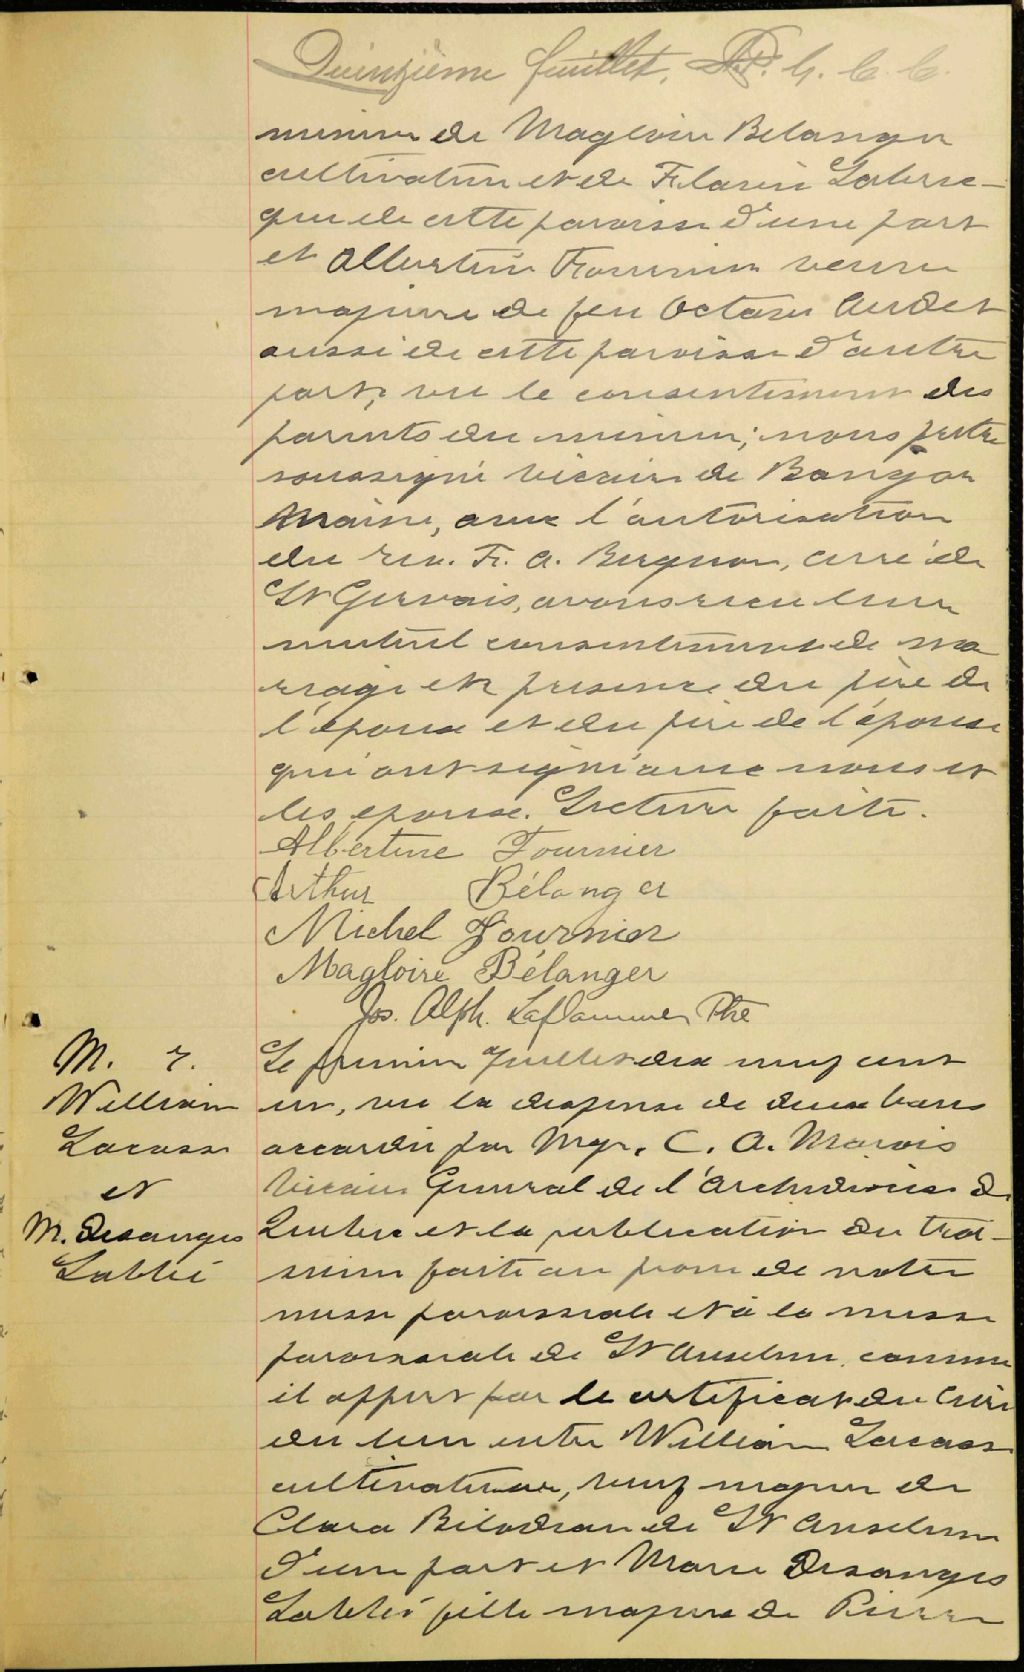 Quinzième feuillet, P. G. C. C.
mineur de Magloire Belanger
cultivateur et de Flavie Laberc-
que de cette paroisse d'une part
et Albertine Fournier veuve
majeure de feu Octave Audet
aussi de cette paroisse d'autre
part; vu le consentement des
parents du mineur; nous prêtre
soussigné vicaire de Bangor
Maine, avec l'autorisation
du rev. F. A. Bergeron, curé de
St Gervais, avons recu leur
mutuel consentement de ma
riage en presence du père de
l'epoux et du père de l'épouse
qui ont signé avec nous et
les epoux. Lecture faite.
Albertine Fournier
Arthur Bélanger
Michel Fournier
Magloire Bélanger
Jos. Alph. Laflamme Ptre
M. 7.
William
Lacasse
et
M. Desanges
Labbé
Le premier Juillet dix neuf cent
un, vu la dispense de deux bans
accordée par Mgr. C. A. Marois
Vicaire General de l'Archidiocèse de
Quebec et la publication du troi-
sieme faite au prone de notre
messe paroissiale et à la messe
paroissiale de St Anselme comme
il appert par le certificat du Curé
du lieu entre William Lacasse
cultivateur, veuf majeur de
Clara Bilodeau de St Anselme
d'une part et Marie Desanges
Labbé fille majeure de Pierre